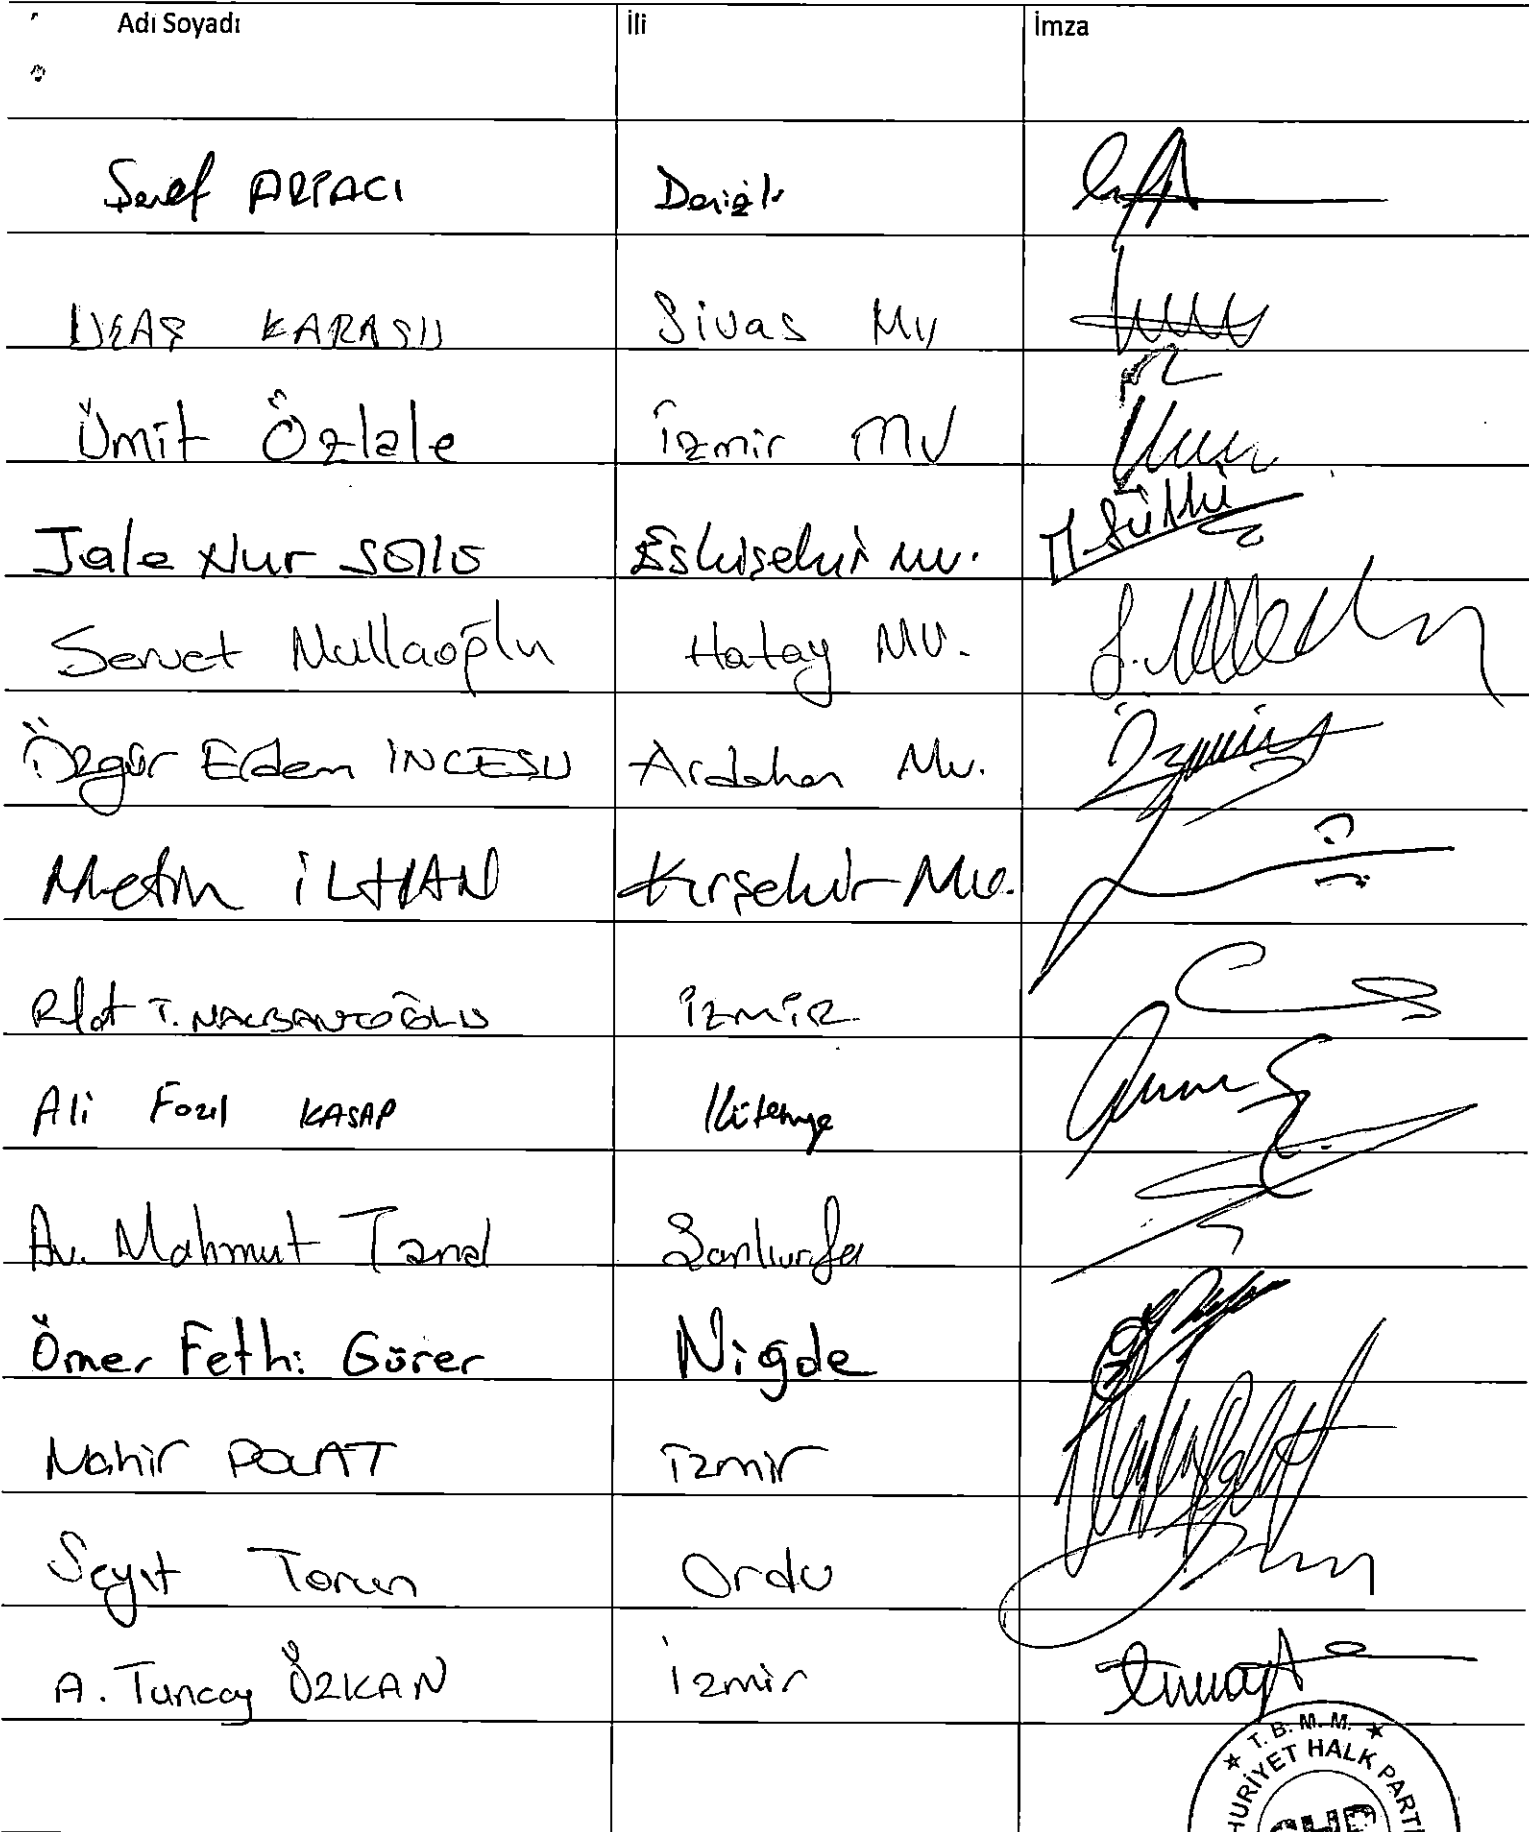 Adı Soyadı İli İmza
Şeref ARPACI Denizli
ULAŞ KARASU Sivas Mv
Ümit Özlale İzmir MV
Jale Nur SÜLLÜ Eskişehir Mv.
Servet Mullaoğlu Hatay MV.
Özgür Erdem İNCESU Ardahan Mv.
Metin İLHAN Kırşehir Mv.
Rıfat T. NALBANTOĞLU İZMİR
Ali Fazıl KASAP Kütahya
Av. Mahmut Tanal Şanlıurfa
Ömer Fethi Gürer Niğde
Mahir POLAT İzmir
Seyit Torun Ordu
A. Tuncay ÖZKAN İzmir
★ T.B.M.M. ★
HURİYET HALK PARTİ
CHP